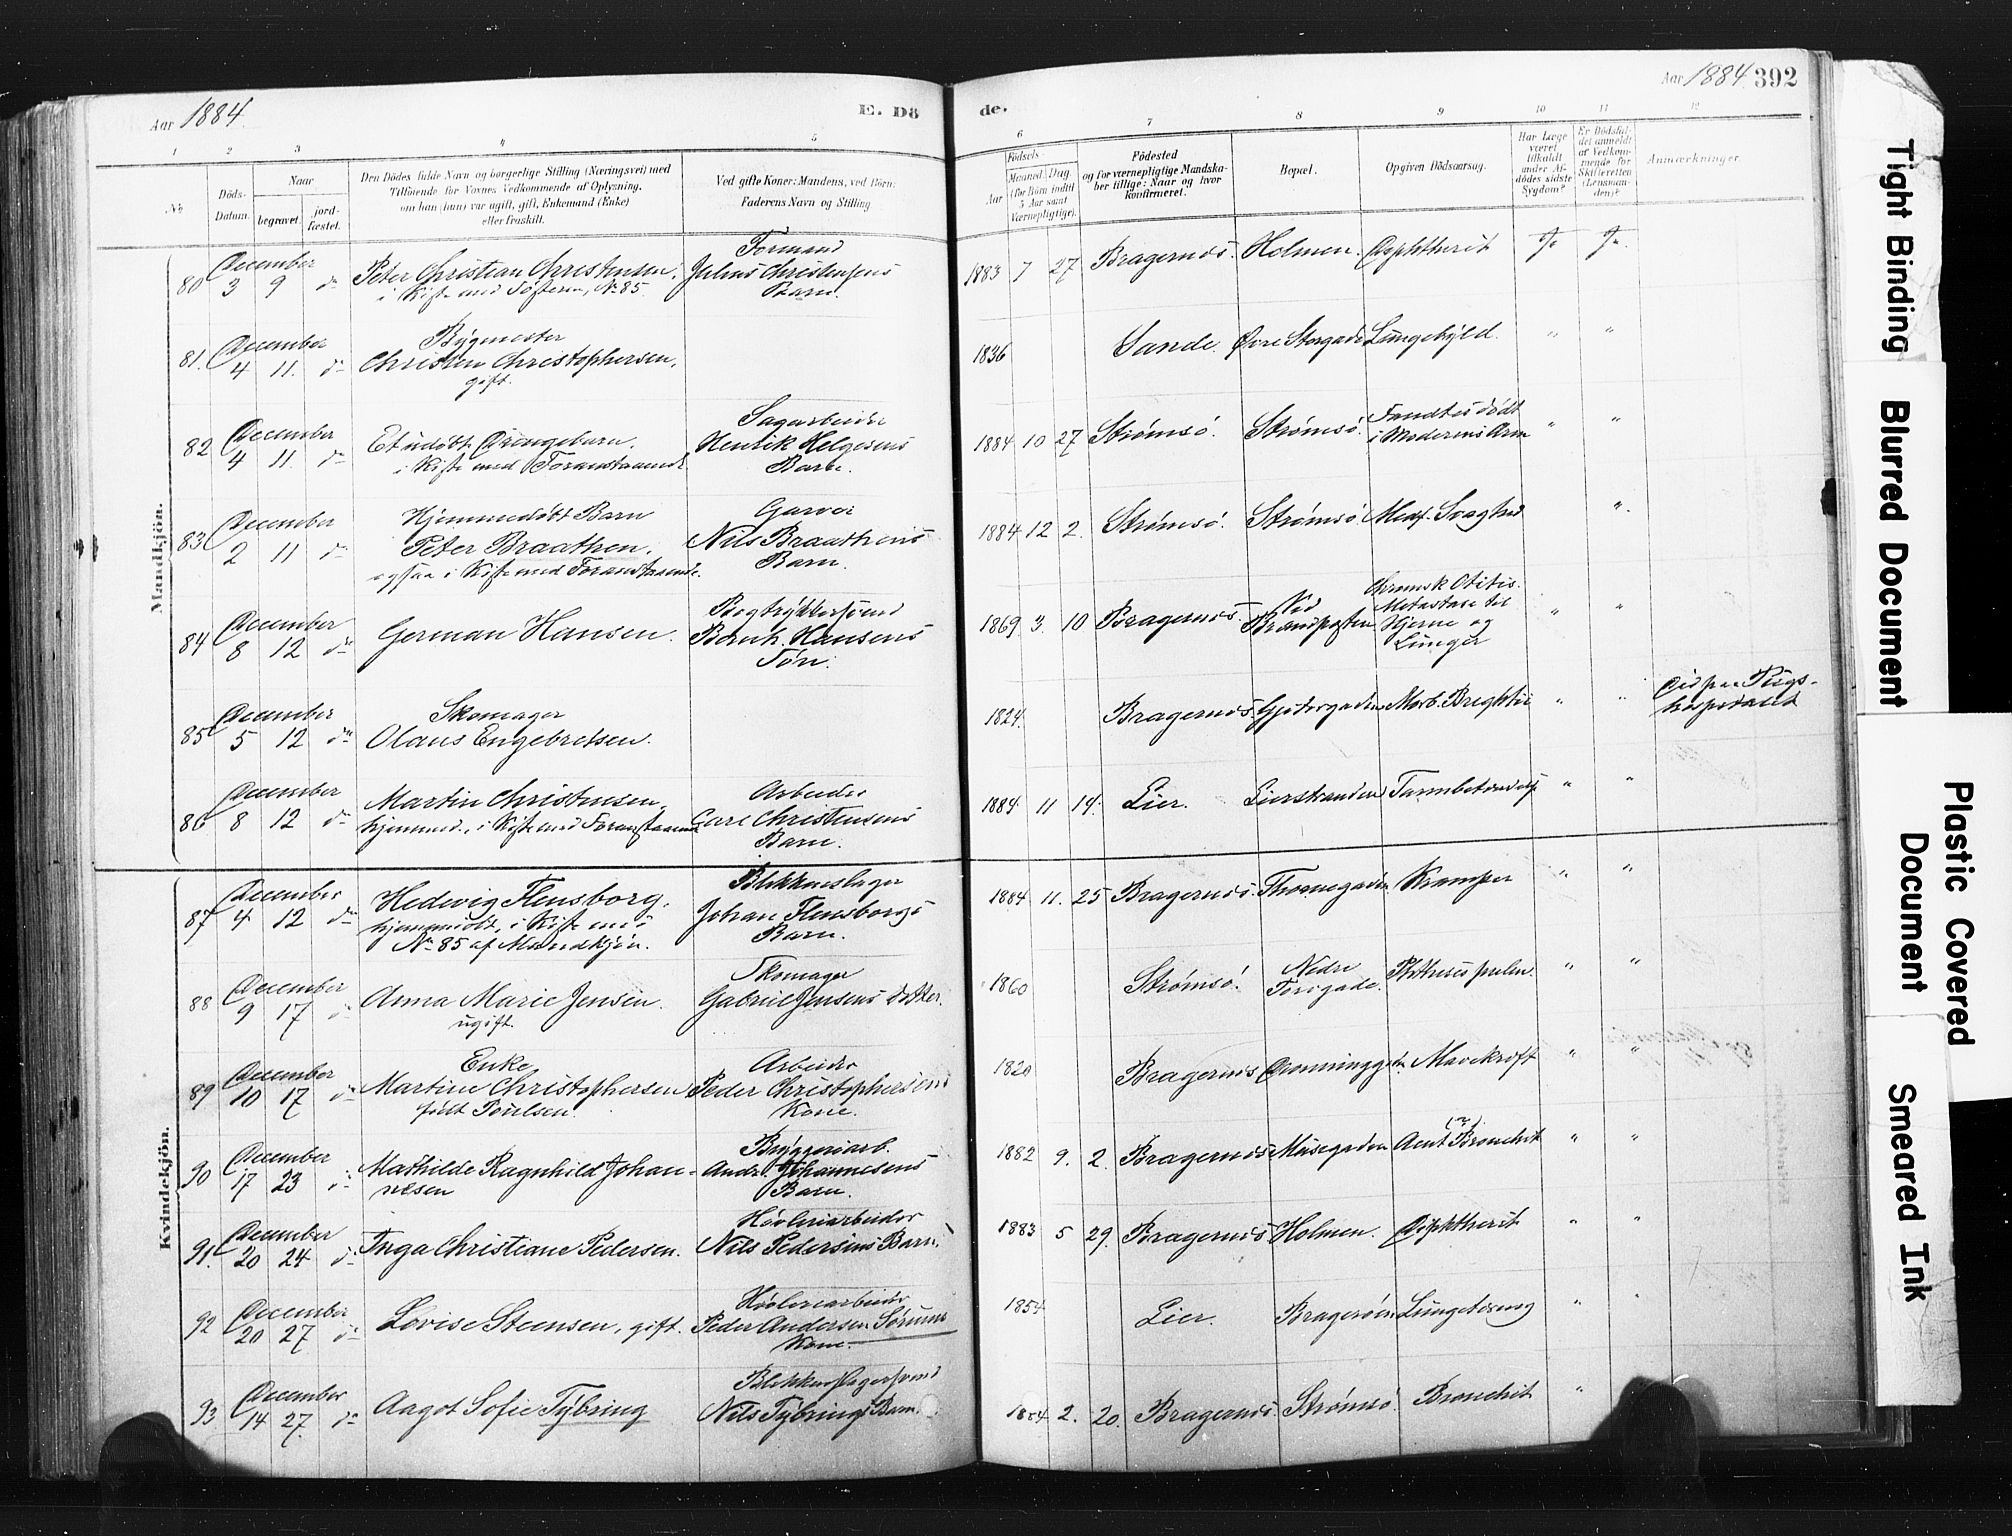 Aar 1884.
E. Dö
de.
Aar 1884. 392
1 2 3 4 5 6 7 8 9 10 11 12
No.
Döds-Datum.
Naar
begravet.
jord-fæstet.
Den Dödes fulde Navn og borgerlige Stilling (Næringsvei) med
Tilföiende for Voxnes Vedkommende af Oplysning,
om han (hun) var ugift, gift, Enkemand (Enke)
eller fraskilt.
Ved gifte Koner: Mandens, ved Börn:
Faderens Navn og Stilling
Födsels-
Aar
Maaned. Dag
(for Börn indtil 5 Aar samt Værnepligtige).
Födested
og for værnepligtige Mandska-
ber tillige: Naar og hvor
konfirmeret.
Bopæl.
Opgiven Dödsaarsag.
Har Læge
været
tilkaldt
under Af-
dödes sidste
Sygdom?
Er Dödsfal-
det anmeldt
af Vedkom-
mende for
Skifteretten
(Lensman-
den)?
Anmærkninger.
Mandkjön.
80 December 3 9 do Peter Christian Christensen, i Kiste med Søsteren, No 85. Formand Julius Christensens Barn. 1883 7 27 Bragernæs. Holmen. Diphtherit Ja Ja.
81. December 4 11. do Bygmester Christen Christophersen, gift. 1836 Sande. Øvre Storgade Lungebyld. " "
82 December 4 11. do Et udøbt Drengebarn. i Kiste med Foranstaaende Sagarbeider Henrik Helgesens Barn. 1884 10 27 Strømsö. Strømsö. Fandtes dødt i Moderens Arm " "
83 December 2 11 do Hjemmedøbt Barn Peter Braathen, ogsaa i Kiste med Foranstaaende. Garver Nils Braathens Barn. 1884 12 2. Strømsö. Strømsö. Medf. Svaghed ".
84 December 8 12 do German Hansen. Bogtrykkersvend Bernh. Hansens Søn. 1869 3. 10 Bragernæs. Ved Brandposten Chronisk Otitis. Metastase til Hjerne og Lunger " "
85 December 5 12 do Skomager Olaus Engebretsen. 1824. Bragernæs. Gjetergaden Morb. Brightii " " Død paa Rigs-hospitalet
86 December 8 12 do Martin Christensen, hjemmed., i Kiste med Foranstaaende Arbeider Carl Christensens Barn. 1884 11 14. Lier. Lierstranden Tarmbetændelse " "
Kvindekjön.
87 December 4 12 do Hedevig Flensborg, hjemmedøbt, i Kiste med No 85 af Mandkjön. Blikkenslager Johan Flensborgs Barn. 1884 11. 25 Bragernæs. Thornegaden Kramper " "
88 December 9 17 do Anna Marie Jensen. ugift. Skomager Gabriel Jensens Datter. 1860 Strømsö. Nedre Torvgade. Phthisis pulm. " "
89 December 10 17 do Enke Martine Christophersen født Poulsen. Arbeider Peder Christophersens Kone. 1820 Bragernæs Dronninggaden Mavekræft " "
90 December 17 23 do Mathilde Ragnhild Johan-nesen Byggeriarb. Andr. Johannesens Barn. 1882 9. 2. Bragernæs Musegaden Acut Bronchit " "
91. December 20 24 do Inga Christiane Pedersen. Høvleriarbeider Nils Pedersens Barn. 1883 5 29. Bragernæs Holmen. Diphtherit " "
92 December 20 27 do Lovise Steensen, gift. Høvleriarbeider Peder Andersen Sørums Kone. 1854 Lier. Bragerøen Lungetæring " "
93. December 14 27. do Aagot Sofie Tybring Blikkenslagersvend Nils Tybrings Barn. 1884 2. 20. Bragernæs. Strømsö. Bronchit "
Tight Binding
Blurred Document
Plastic Covered
Document
Smeared Ink